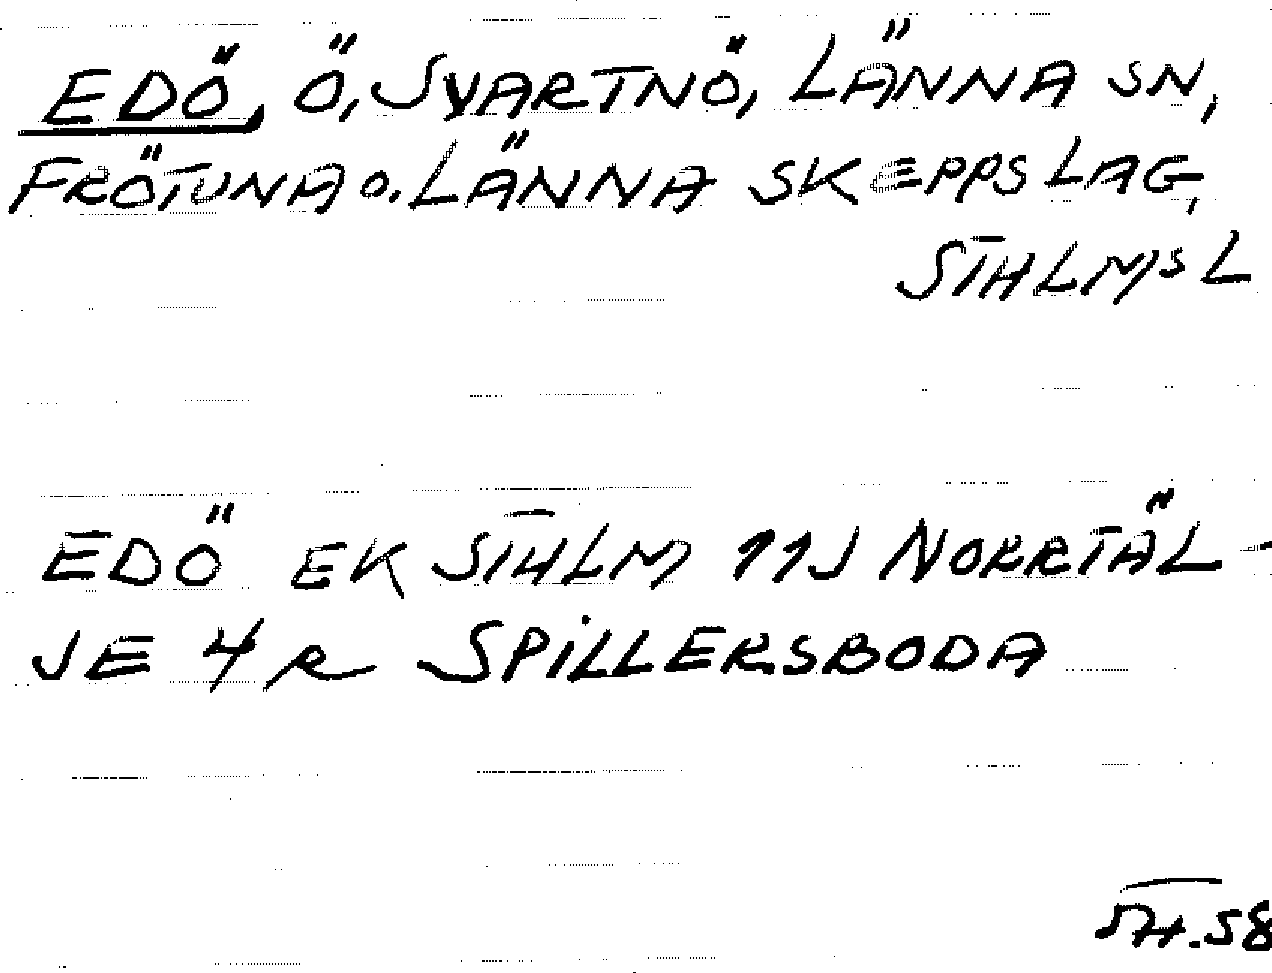 EDÖ, Ö, SVARTNÖ, LÄNNA SN,
FRÖTUNA O. LÄNNA SKEPPSLAG,
STHLMS L
EDÖ EK STHLM 11J NORRTÄL-
JE 4 R SPILLERSBODA